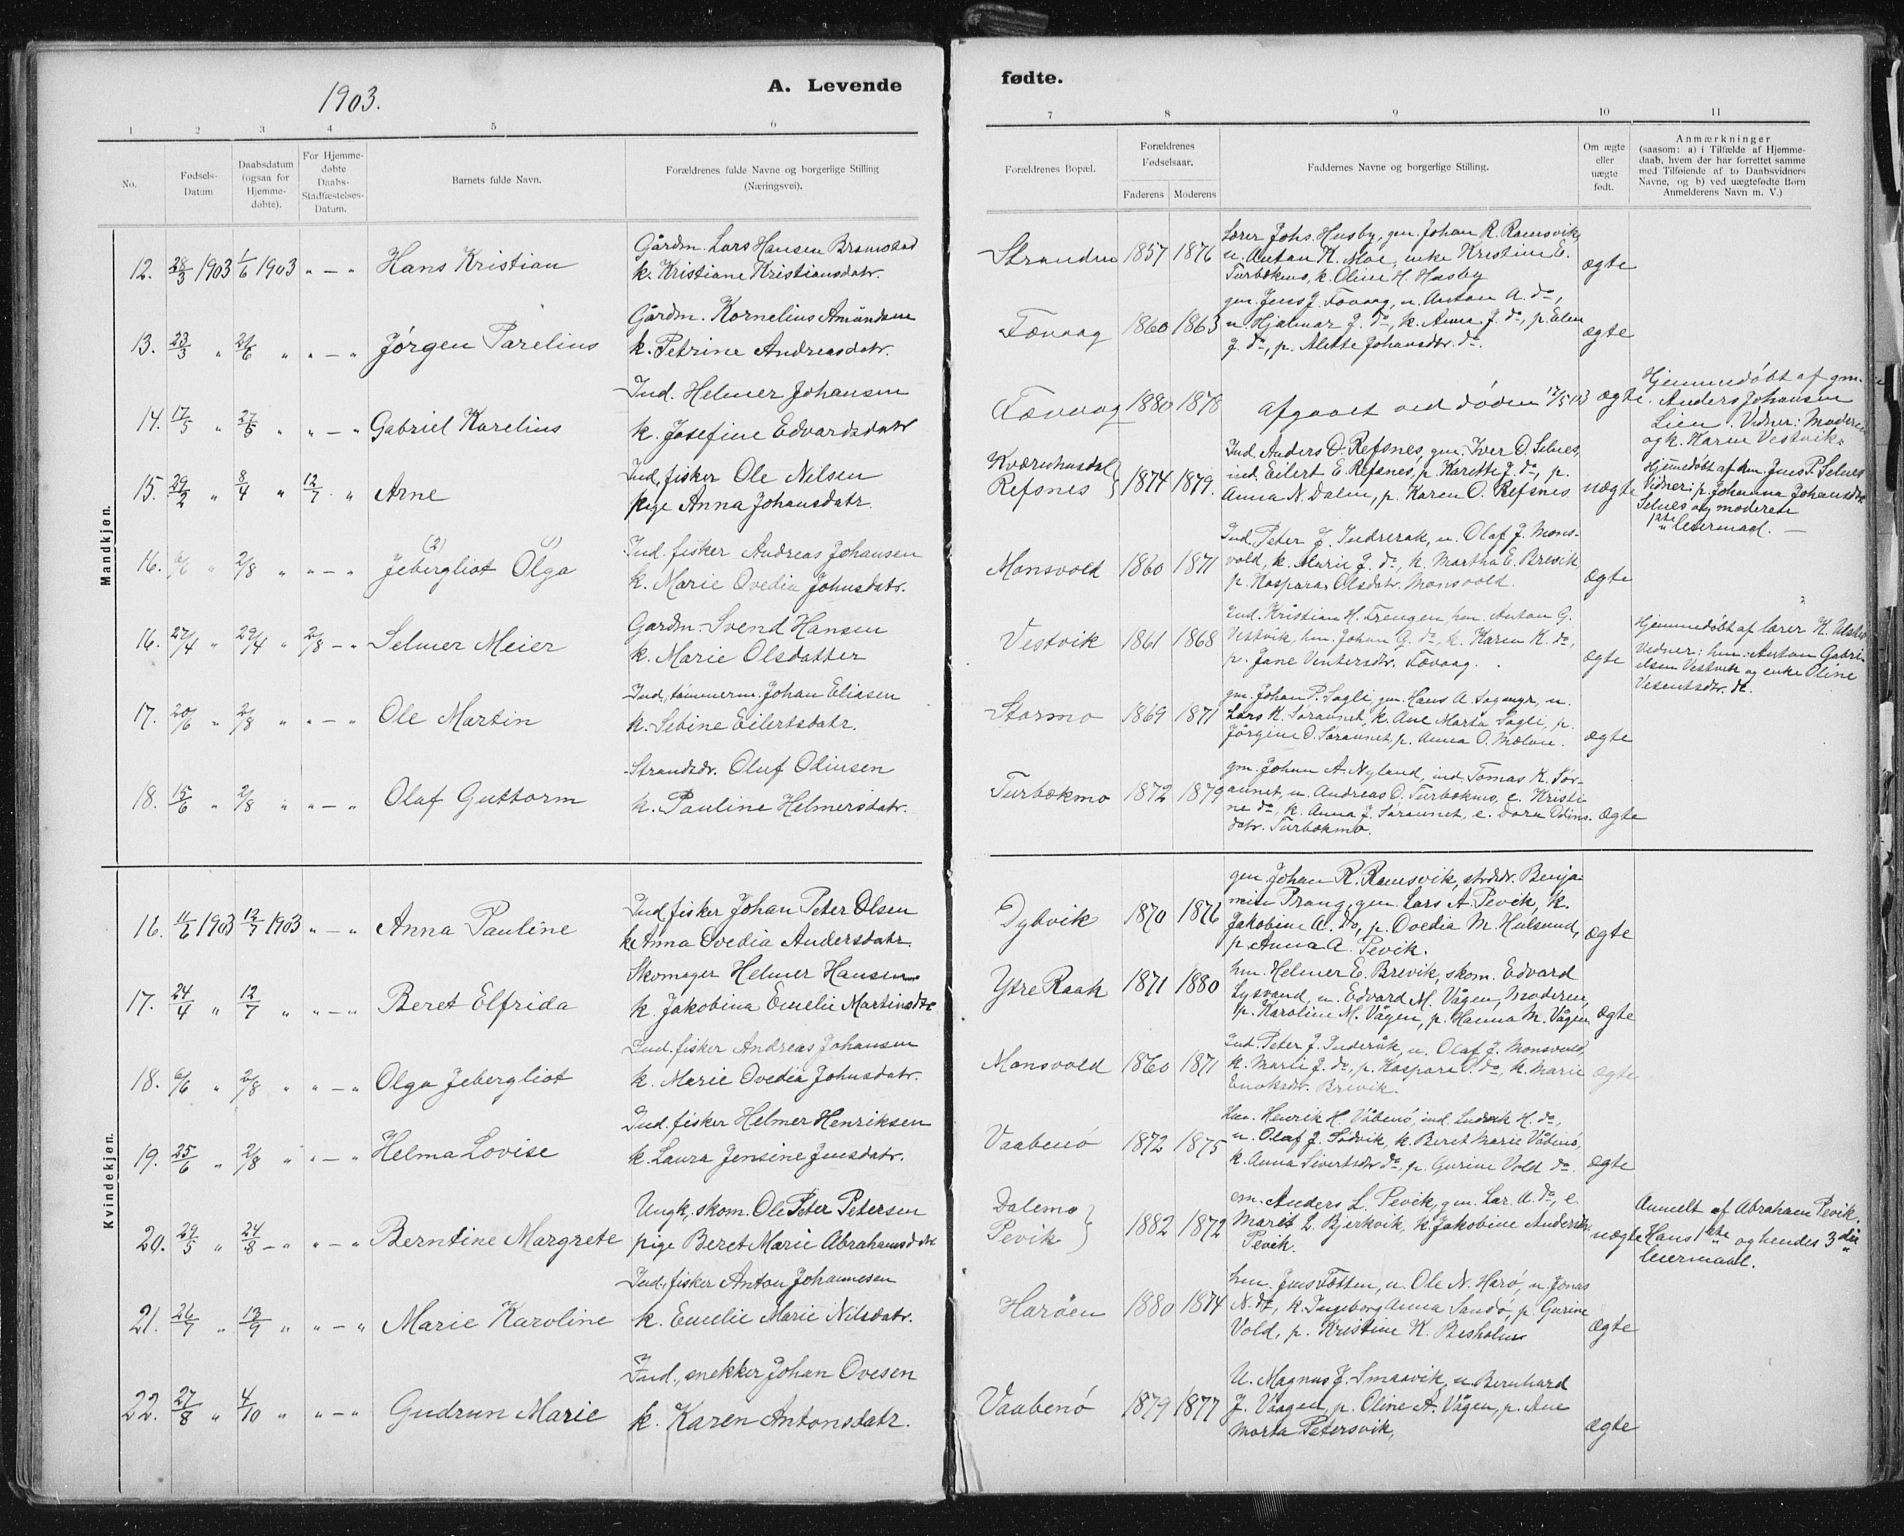 1903.
A. Levende
fødte.
1 2 3 4 5 6
7 8 9 10 11
No.
Fødsels-
Datum
Daabsdatum
(ogsaa for
Hjemme-
døbte).
For Hjemme-
døbte
Daabs-
Stadfæstelses-
Datum.
Barnets fulde Navn.
Forældrenes fulde Navne og borgerlige Stilling
(Næringsvei).
Forældrenes Bopæl.
Forældrenes
Fødselsaar.
Faderens Moderens
Faddernes Navne og borgerlige Stilling.
Om ægte
eller
uægte
født.
Anmærkninger
(saasom: a) i Tilfælde af Hjemme-
daab, hvem der har forrettet samme
med Tilføiende af to Daabsvidners
Navne, og b) ved uægtefødte Børn
Anmelderens Navn m. V.)
Mandkjøn.
12. 28/3 1903 1/6 1903 " — " Hans Kristian
Gårdm. Lars Hansen Bramstad
k. Kristiane Kristiansdatr.
Stranden 1857 1876
Lærer Johs. Husby, gm. Johan R. Ramsvik,
u. Anton K. Moe, enke Kristine E.
Turbekmo, k. Oline H. Husby
ægte
13. 23/3 " 21/6 " " — " Jørgen Parelius
Gårdm. Kornelius Amundsen
k. Petrine Andreasdatr.
Tævaag 1860 1863
gm. Jens J. Tævaag, u. Anton A. do,
u. Hjalmar J. do, k. Anna J. do, p. Elen
J. do, p. Alette Johansdtr. do.
ægte
14. 17/5 " 27/5 " " — " Gabriel Karelius
Ind. Helmer Johansen
k. Josefine Edvardsdatr
Tævaag 1880 1878
Afgaaet ved døden 17/5 03 ægte
Hjemmedøbt af gm.
Anders Johansen
Lien. Vidner: Moderen
og k. Haren Vestvik.
15. 29/2 " 8/4 " 12/7 " Arne
Ind, fisker Ole Nilsen
pige Anna Johansdatr.
Kværnhusdal
Refsnes } 1874 1879.
Ind. Anders O. Refsnes, gm. Iver O. Selnes,
ind. Eilert E. Refsnes, p. Karette J. do, p.
Anna N. Dalen, p. Karen O. Refsnes
uægte
Hjemedøbt af hm. Jens P. Selnes
Vidner: p. Johanna Johansdtr
Selnes og moderen
1ste leiermaal. —
16. 6/6 " 2/8 " " — " (2) Jebergliot (1) Olga
Ind. fisker Andreas Johansen
k. Marie Ovedia Johnsdatr.
Monsvold 1860 1871
Ind. Peter J. Inderøak, u. Olaf J. Mons-
vold, k. Marie J. do, k. Martha E. Brevik,
p. Kaspara Olsdatr. Monsvold.
ægte
16. 27/4 " 29/4 " 2/8 — " Selmer Meier
Gårdm. Svend Hansen
k. Marie Olsdatter
Vestvik 1861 1868
Ind. Kristian H. Trengen, hm. Anton G.
Vestvik, hm. Johan G. do, k. Karen K. do,
p. Jane Ventersdr. Tævaag.
ægte
Hjemmedøbt af lærer K.
Vidner: hm. Anton Gabri-
elsen Vestvik og enke Oline
Vesentsdtr. do.
17. 20/6 " 2/8 " " — " Ole Martin
Ind, tømmerm. Johan Eliasen
k. Sebine Eilertsdatr.
Stormo 1869 1871
gm. Johan P. Sagli, gm. Hans A. Sagmyr, u.
Lars K. Søraunet, k. Ane Marta Sagli, p.
Jørgine O. Søraunet, p. Anna O. Mælan.
ægte
18. 15/6 " 2/8 " " — " Olaf Guttorm
Strandsdr. Oluf Odinsen
k. Pauline Helmersdatr.
Turbekmo 1872 1879
gm. Johan A. Nyland, ind Tomas K. Sør-
aunet, u. Andreas O. Turbekmo, e. Kristi-
ne do, k. Anna J. Søraunet, e. Dora Odins-
datr. Turbekmo.
ægte
Kvindekjøn.
16. 11/6 1903 12/7 1903 " — " Anna Pauline
Ind, fisker Johan Peter Olsen
k. Anna Ovedia Andersdatr.
Dybvik 1870 1876
gm. Johan R. Ramsvik, strdsdr. Benja-
min Prang, gm. Lars A. Pevik, k.
Jakobine A. do, p. Ovedia M. Hulsund,
p. Anna A. Pevik.
ægte
17. 24/4 " 12/7 " " — " Beret Elfrida
Skomager Helmer Hansen
k. Jakobina Emelie Martinsdtr
Ytre Raak 1871 1880
hm. Helmer E. Brevik, skom. Edvard
Lysvand, u. Edvard M. Vågen, Moderen,
p. Karoline M. Vågen, p. Hanna M. Vågen
ægte
18. 6/6 " 2/8 " " — " Olga Jebergliot
Ind. fisker Andreas Johansen
k. Marie Ovedia Johnsdatr.
Monsvold 1860 1871
Ind. Peter J. Inderåk, u. Olaf J. Monsvold,
k. Marie J. do, p. Kaspara O. do, k. Marie
Enoksdr. Brevik.
ægte
19. 25/6 " 2/8 " " — " Helma Lovise
Ind. fisker Helmer Henriksen
k. Laura Jensine Jensdatr.
Vaabenø 1872 1875
hm. Henrik H. Våbenø, ind Ludvik H. do,
u. Olaf J. Sødvik, k. Beret Marie Våbenø,
k. Anna Sivertsdtr do, p. Gurine Vold do.
ægte
20. 29/5 " 24/8 — " " — " Berntine Margrete
Ungk, skom. Ole Peter Petersen
pige Beret Marie Abrahamsdtr
Dalemo
Pevik } 1882 1872
em. Anders L. Pevik, gm. Lar A. do, e.
Marit L. Bjerkvik, k. Jakobine Andersdtr
Pevik.
uægte
Anmelt af Abraham Pevik.
Hans 1ste og hendes 3die
leiermaal.
21. 26/7 " 13/9 " " — " Marie Karoline
Ind., fisker Anton Johannesen
k. Emelie Marie Nilsdatr.
Harøen 1880 1874
hm. Jens Totten, u. Ole N. Harø, u. Jonas
N. do, k. Ingeborg Anna Sandø, p. Gurine
Vold, p. Kristine K. Besholm
ægte
22. 27/8 " 4/10 " " — " Gudrun Marie
Ind., snekker Johan Ovesen
k. Karen Antonsdatr.
Vaabenø 1879 1877
U. Magnus J. Smaavik, u. Bernhard
J. Vaagen, p. Oline A. Vågen, p. Ane
Marta Petersvik,
ægte